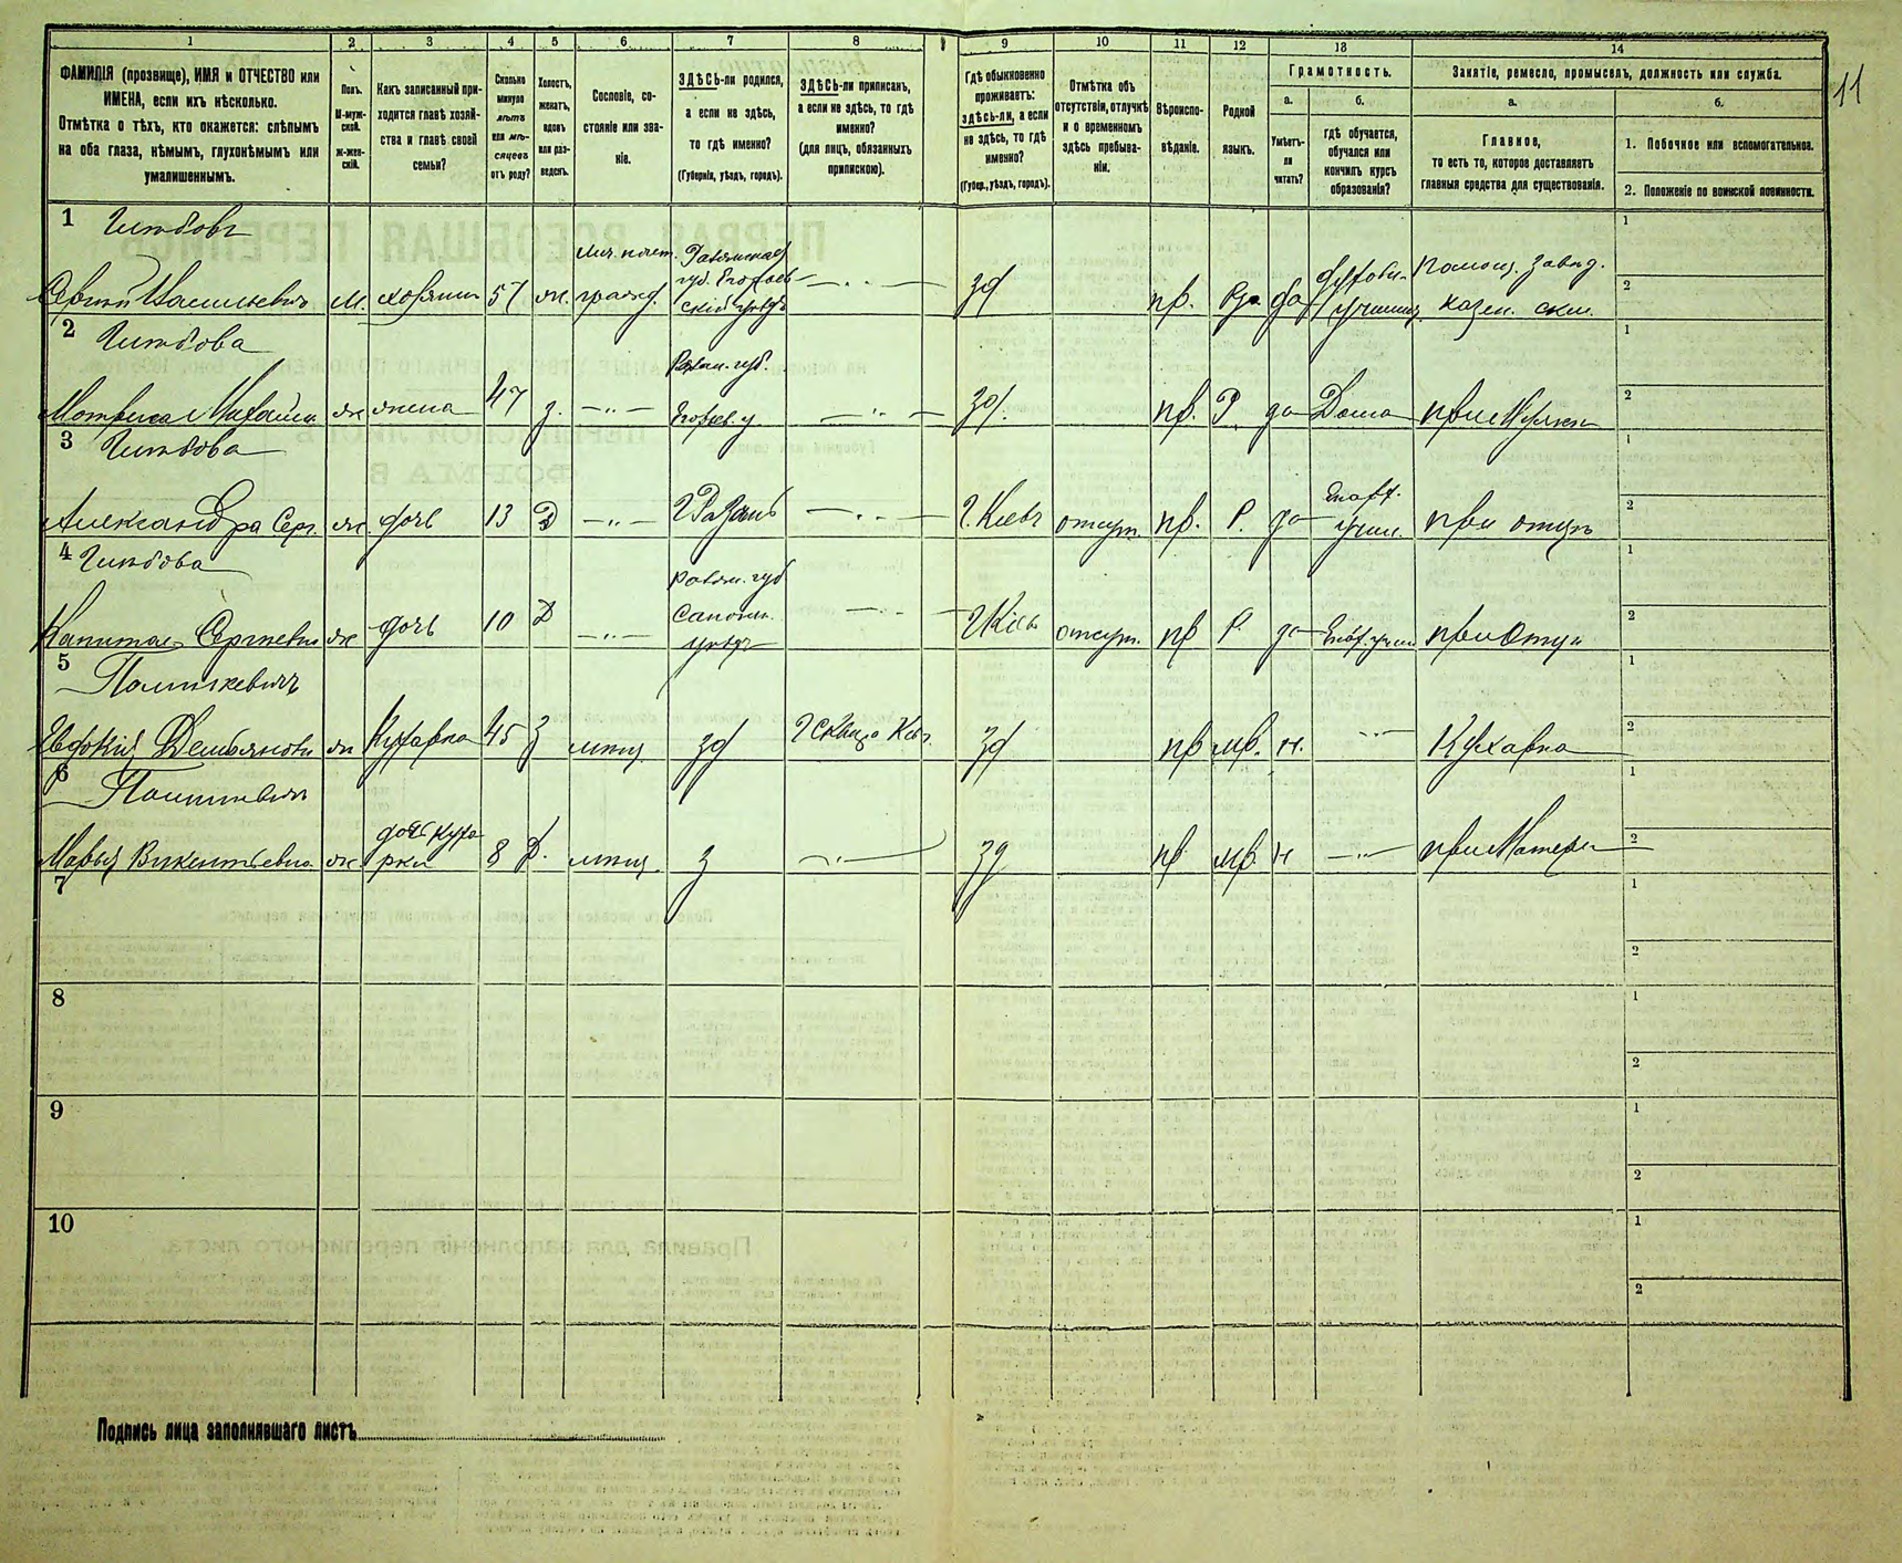 1 2 3 4 5 6 7 8 9 10 11 12 13 14
11
ФАМИЛІЯ (прозвище), ИМЯ и ОТЧЕСТВО или
ИМЕНА, если ихъ нѣсколько.
Отмѣтка о тѣхъ, кто окажется: слѣпымъ
на оба глаза, нѣмымъ, глухонѣмымъ или
умалишеннымъ.
Полъ.
М-муж-
ской.
Ж-жен-
скій.
Какъ записанный при-
ходится главѣ хозяй-
ства и главѣ своей
семьи?
Сколько
минуло
лѣтъ
или мѣ-
сяцевъ
отъ роду?
Холостъ,
женатъ,
вдовъ
или раз-
веденъ.
Сословіе, со-
стояніе или зва-
ніе.
ЗДѢСЬ-ли родился,
а если не здѣсь,
то гдѣ именно?
(Губернія, уѣздъ, городъ).
ЗДѢСЬ-ли приписанъ,
а если не здѣсь, то гдѣ
именно?
(для лицъ, обязанныхъ
припискою).
Гдѣ обыкновенно
проживаетъ:
здѣсь-ли, а если
не здѣсь, то гдѣ
именно?
(Губер., уѣздъ, городъ).
Отмѣтка объ
отсутствіи, отлучкѣ
и о временномъ
здѣсь пребыва-
ніи.
Вѣроиспо-
вѣданіе.
Родной
языкъ.
Грамотность.
а.
Умѣетъ-
ли
читать?
б.
гдѣ обучается,
обучался или
кончилъ курсъ
образованія?
Занятіе, ремесло, промыселъ, должность или служба.
а.
Главное,
то есть то, которое доставляетъ
главныя средства для существованія.
б.
1. Побочное или вспомогательное.
2. Положеніе по воинской повинности.
1
Лич. почет. Рязанская
губ. Егорьев-
Помощ. завѣд.
Сергѣй Васильевичъ м. хозяинъ 57 ж. гражд. скій уѣздъ зд пр. да казен. скл.
2
Рязан. губ.
Михайл. ж жена 47 з. Егорьев. у зд. пр. Р да Дома при мужѣ
3
Епарх.
Александра Серг. ж. дочь 13 Д г Рязань г. Кіевъ отсут. пр. Р. да учил. при отцѣ
4
Рязан. губ
Сапожк.
Сергѣевна ж дочь 10 Д уѣздъ отсут. пр Р. да Епарх. учил при отцѣ
5
ж Кухарка 45 мѣщ зд зд пр мр. н. Кухарка
6
дочь куха-
Марья Викентьевна ж рки 8 Д. мѣщ. з зд пр мр. н при матери
7
8
9
10
Подпись лица заполнявшаго листъ